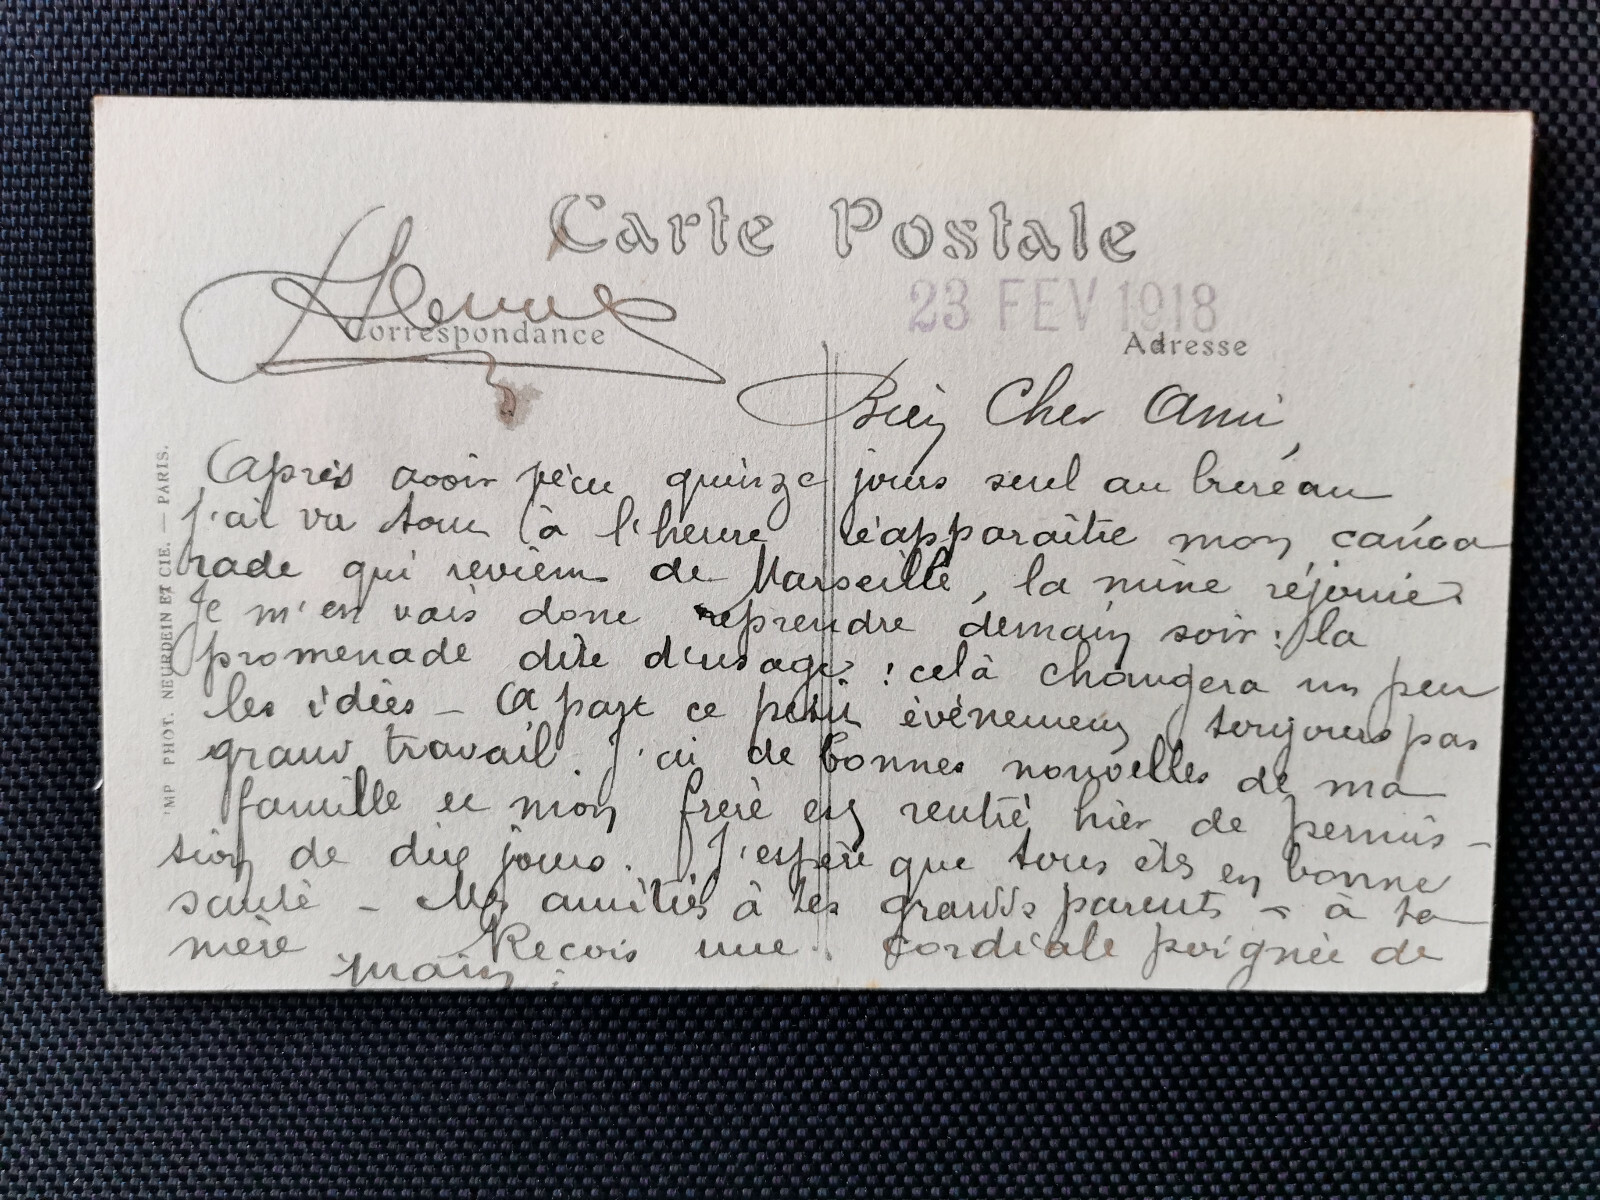 Carte Postale
23 FEV 1918
Correspondance
Adresse
Bien Cher Ami,
Après avoir vécu quinze jours seul au bureau
j'ai vu tout à l'heure réapparaître mon cama
rade qui revient de Marseille, la mine réjouie.
Je m'en vais donc reprendre demain soir : la
promenade dite d'usage : celà changera un peu
les idées - A part ce petit évènement toujours pas
grand travail. J'ai de bonnes nouvelles de ma
famille et mon frère est rentré hier de permis-
sion de dix jours. J'espère que tous êts en bonne
santé - Mes amitiés à tes grands parents - à ta
mère Reçois une cordiale poignée de
main.
IMP. PHOT. NEURDEIN ET CIE. — PARIS.